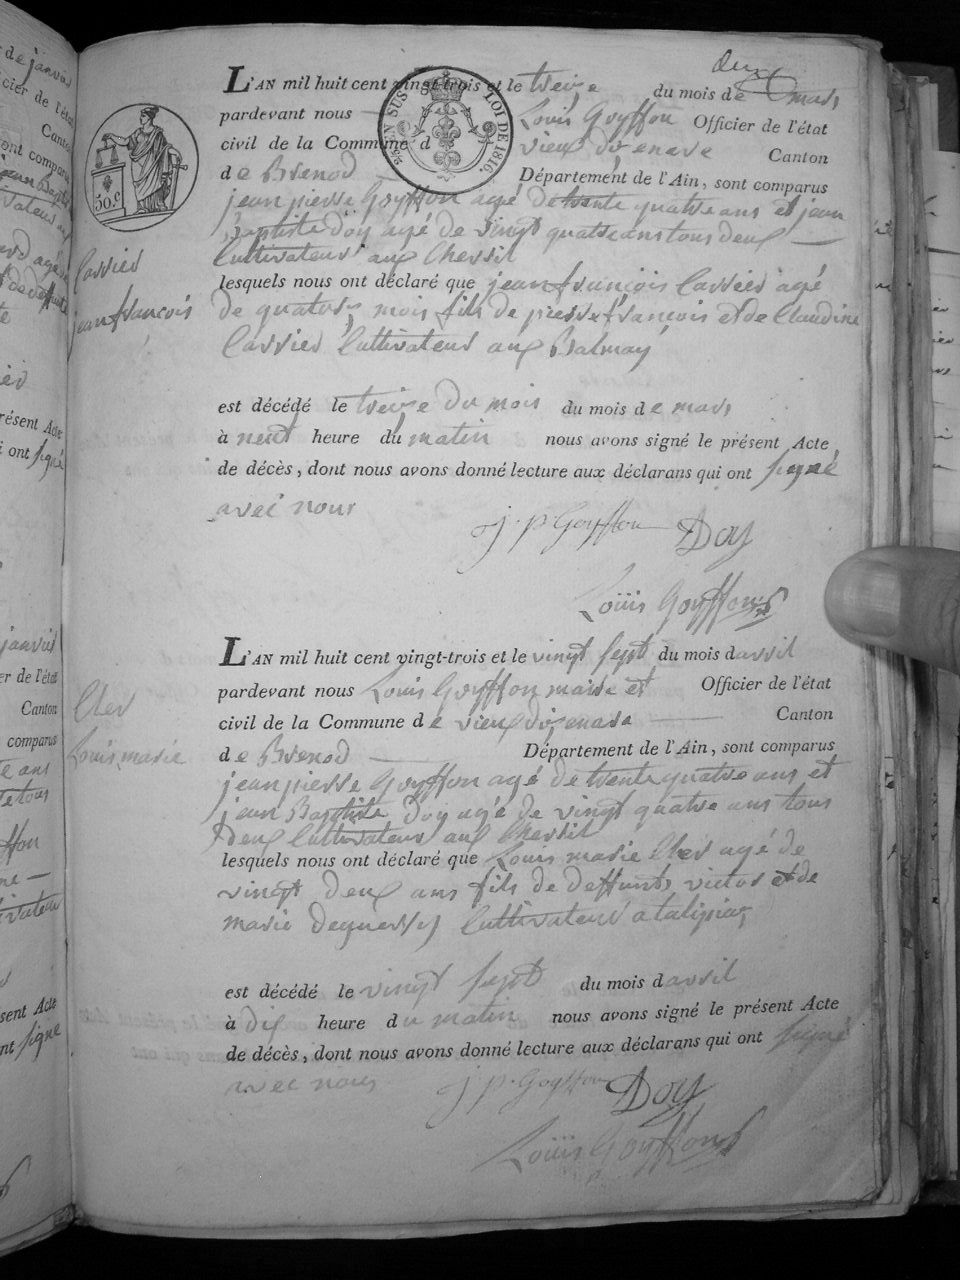 deux
L'AN mil huit cent vingt-trois et le treize du mois de mars
pardevant nous Louis Goyffon Officier de l'état
civil de la Commune d vieux d'izenave Canton
de Brenod Département de l'Ain, sont comparus
jean pierre Goyffon agé de trente quatre ans et jean
Baptiste Doy agé de vingt quatre ans tous deux
Cultivateurs aux
lesquels nous ont déclaré que jean françois Carrier agé
de quatorze mois fils de pierre françois et de Claudine
Carrier Cultivateur aux Balmay
est décédé le treize du mois du mois de mars
à neuf heure du matin nous avons signé le présent Acte
de décès, dont nous avons donné lecture aux déclarans qui ont signé
avec nous
j. p. Goyffon Doy
Louis Goyffon
Carrier
jean françois
30.c
25 EN SUS LOI DE 1816
L'AN mil huit cent vingt-trois et le vingt sept du mois d avril
pardevant nous Louis Goyffon maire et Officier de l'état
civil de la Commune de vieux d'izenave Canton
de Brenod Département de l'Ain, sont comparus
jean pierre Goyffon agé de trente quatre ans et
jean Baptiste Doy agé de vingt quatre ans tous
deux Cultivateurs aux
lesquels nous ont déclaré que Louis marie Cler agé de
vingt deux ans fils de deffunts victor et de
marie Cultivateur a
est décédé le vingt sept du mois d avril
à dix heure du matin nous avons signé le présent Acte
de décès, dont nous avons donné lecture aux déclarans qui ont signé
avec nous j. p. Goyffon Doy
Louis Goyffon
Cler
Louis marie